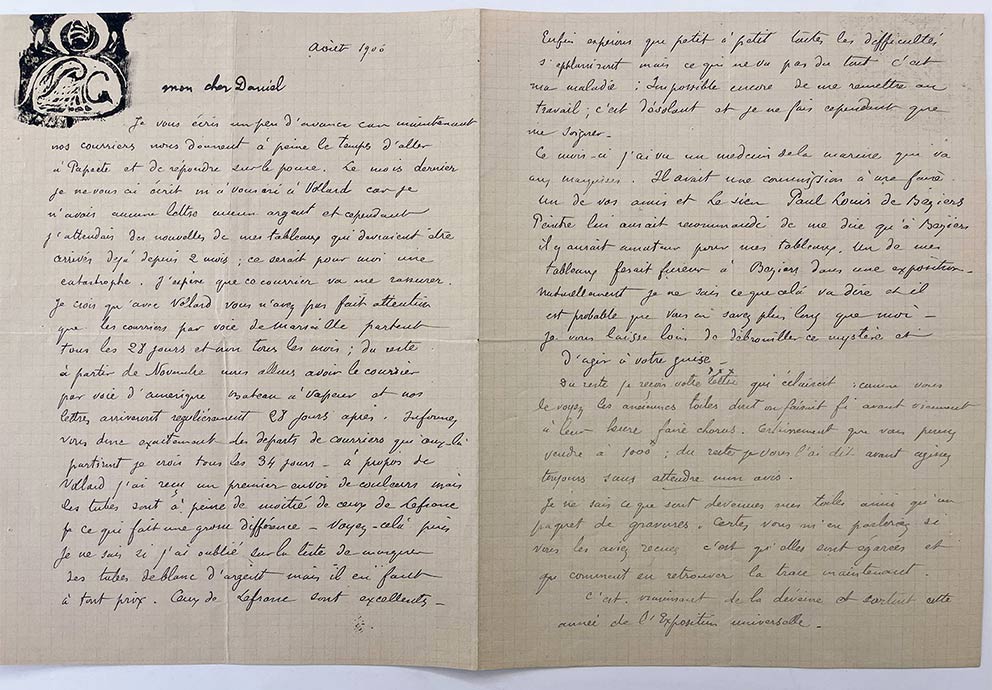 Août 1900
mon cher Daniel
Je vous écris un peu d'avance car maintenant
nos courriers nous donnent à peine le temps d'aller
à Papeete et de répondre sur le pouce. Le mois dernier
je ne vous ai écrit ni à vous ni à Vollard car je
n'avais aucune lettre aucun argent et cependant
j'attendais des nouvelles de mes tableaux qui devraient être
arrivés déjà depuis 2 mois ; ce serait pour moi une
catastrophe. J'espère que ce courrier va me rassurer.
Je crois qu'avec Volard vous n'avez pas fait attention
que les courriers par voie de Marseille partent
tous les 28 jours et non tous les mois ; du reste
à partir de Novembre nous allons avoir le courrier
par voie d'amérique Bateau à Vapeur et nos
lettres arriveront régulièrement 28 jours après. Informez
vous donc exactement des départs de courriers qui
partiront je crois tous les 34 jours — à propos de
Vollard j'ai reçu un premier envoi de couleurs mais
les tubes sont à peine de moitié de ceux de Lefranc
ce qui fait une grosse différence — Voyez-celà
Je ne sais si j'ai oublié sur la liste de marquer
des tubes de blanc d'argent mais il en faut
à tout prix. Ceux de Lefranc sont excellents —
Enfin espérons que petit à petit toutes les difficultés
s'applaniront mais ce qui ne va pas du tout c'est
ma maladie ; Impossible encore de me remettre au
travail, c'est désolant et je ne fais cependant que
me soigner —
Ce mois-ci j'ai vu un médecin de la marine qui va
aux marquises. Il avait une commission à me faire.
Un de vos amis et le sien Paul Louis de Beziers
Peintre lui aurait recommandé de me dire qu'à Beziers
il y aurait amateur pour mes tableaux, un de mes
tableaux ferait fureur à Beziers dans une exposition —
naturellement je ne sais ce que celà va dire et il
est probable que vous en savez plus long que moi —
Je vous laisse loin de débrouiller ce mystère et
d'agir à votre guise —
Du reste je reçois votre lettre qui éclaircit : comme vous
le voyez les anciennes toiles dont on faisait fi avant viennent
à leur heure faire chorus. Certainement que vous pouvez
vendre à 1000 ; du reste je vous l'ai dit avant agissez
toujours sans attendre mon avis.
Je ne sais ce que sont devenues mes toiles ainsi qu'un
paquet de gravures. Certes vous m'en parleriez si
vous les aviez reçues c'est qu'elles sont égarées et
comment en retrouver la trace maintenant.
C'est vraiment de la déveine et surtout cette
année de l'Exposition universelle —